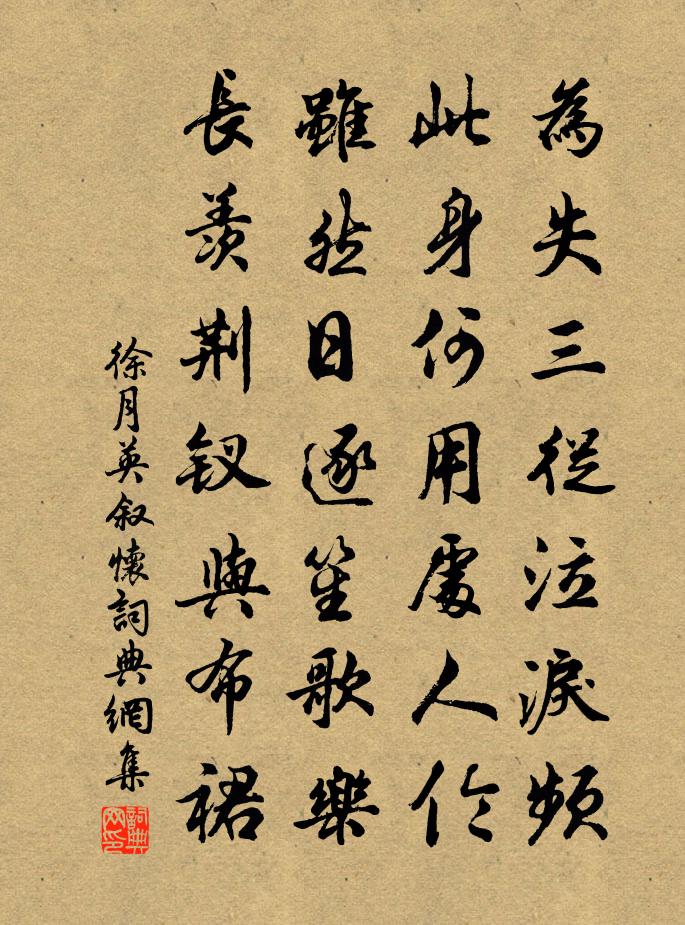 為失三從泣淚頻
此身何用處人倫
雖然日逐笙歌樂
長羨荆釵與布裙
徐月英叙懷詞典網集
詞典网印